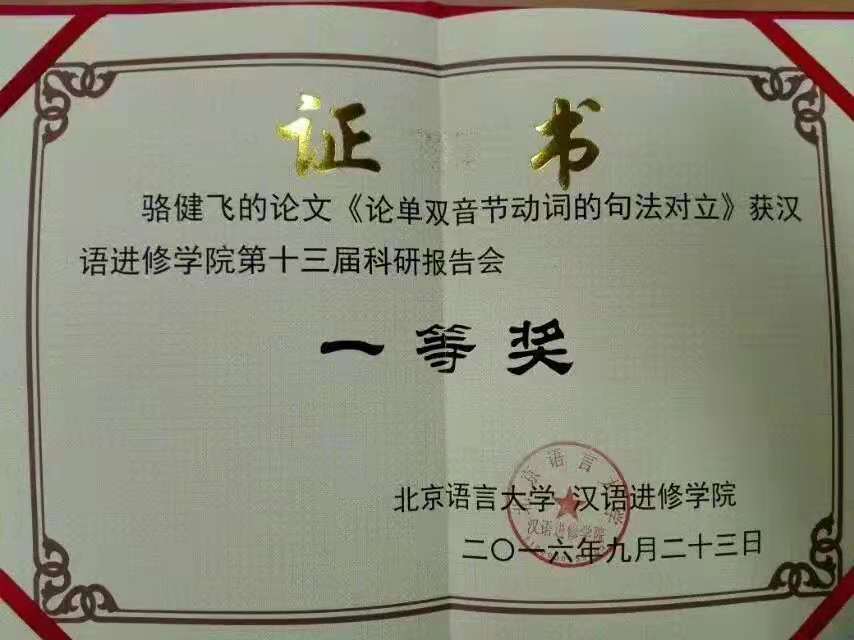 证书
骆健飞的论文《论单双音节动词的句法对立》获汉
语进修学院第十三届科研报告会
一等奖
北京语言大学 汉语进修学院
二〇一六年九月二十三日
北京语言大学
汉语进修学院